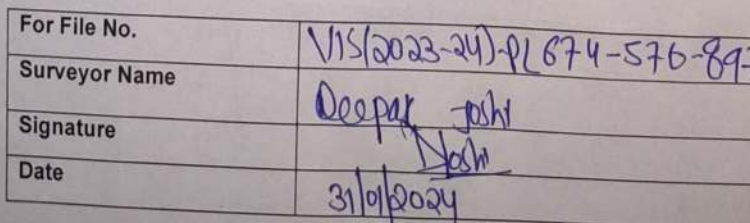 For File No. VIS(2023-24)-PL674-576-89
Surveyor Name Deepak Joshi
Signature DJoshi
Date 31/01/2024